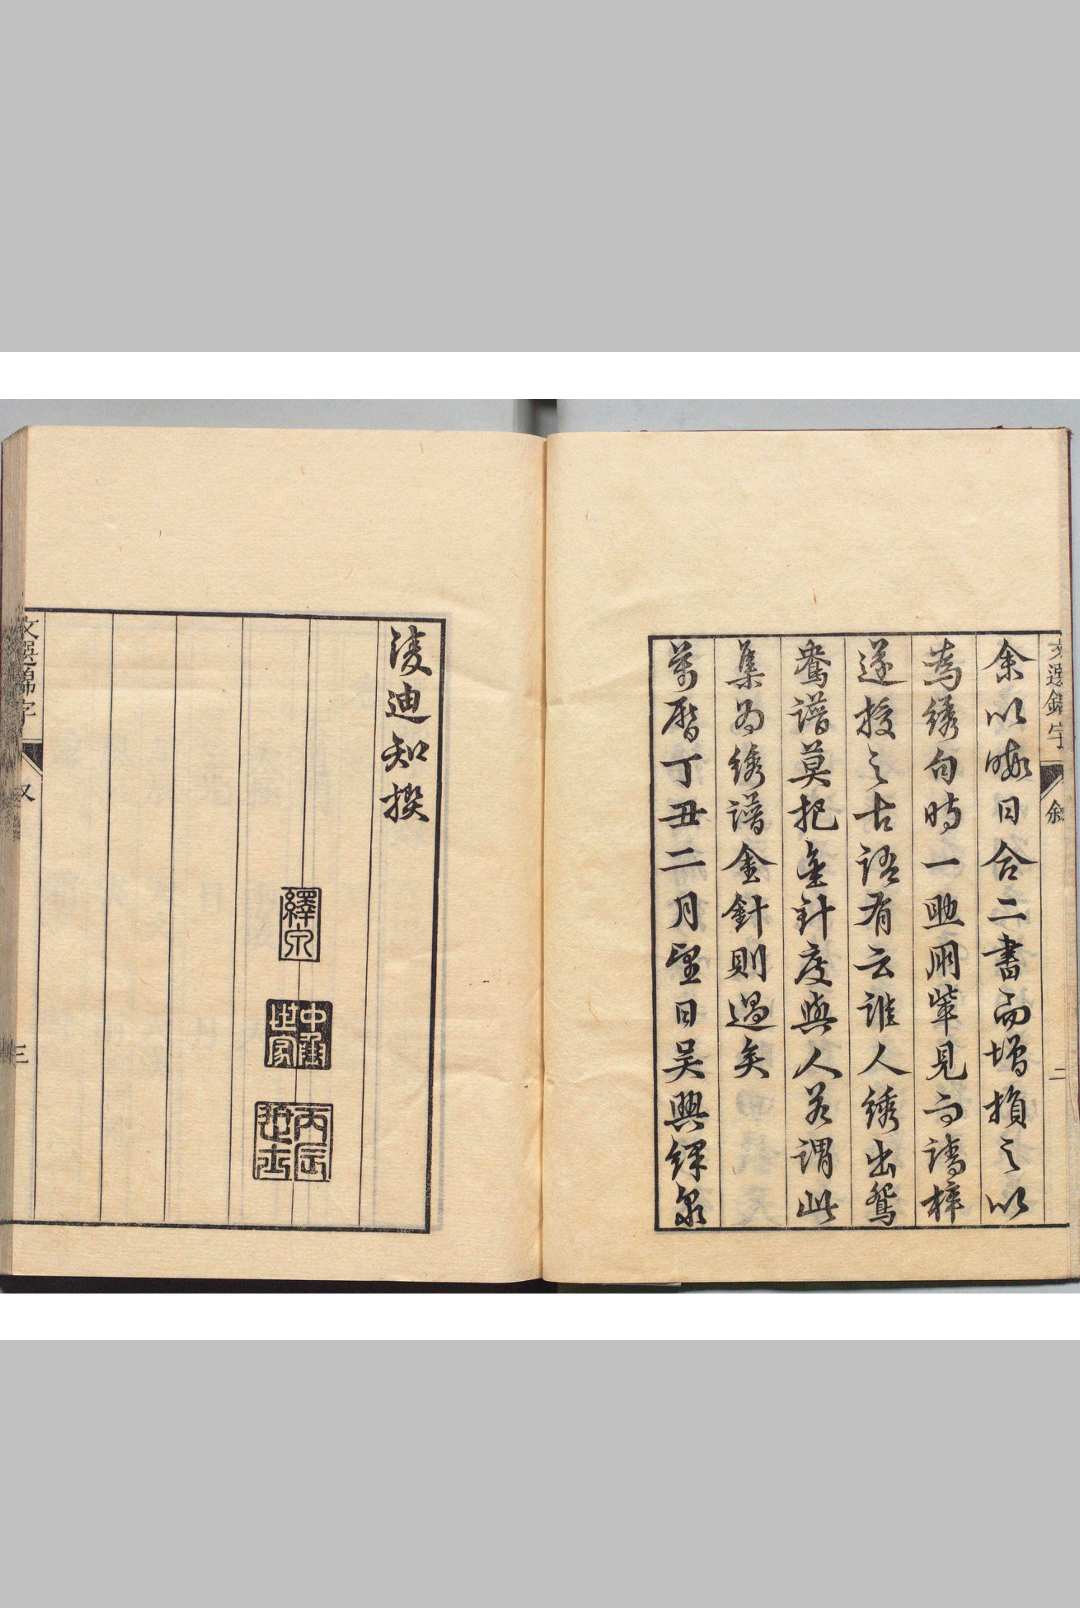 文選錦字
叙
二
余以暇日合二書而增損之以
為綉句時一助朋輩見而請梓
遂授之古語有云誰人綉出鴛
鴦譜莫把金針度與人若謂此
集為綉譜金針則過矣
萬曆丁丑二月望日吳興繹泉
凌迪知撰
繹泉
丙辰進士
文選錦字
三